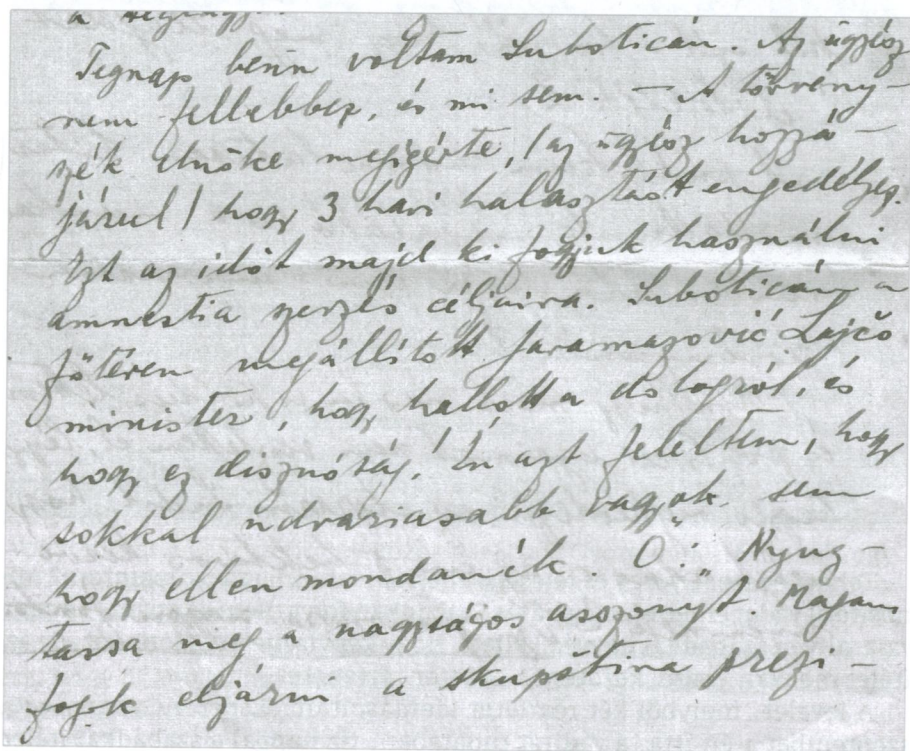 Tegnap benn voltam Suboticán. Az ügyész
nem fellebbez, és mi sem. – A törvény-
szék elnöke megigérte, (az ügyész hozzá-
járul) hogy 3 havi halasztást engedélyez.
Ezt az időt majd ki fogjuk használni
amnestia szerzés céljaira. Suboticán a
főtéren megállított Jaramazović Lajčo
minister, hogy hallott a dologról, és
hogy ez disznóság! Én azt feleltem, hogy
sokkal udvariasabb vagyok, sem
hogy ellen mondanék. Ő: „Nyug-
tassa meg a nagyságos asszonyt. Magam
fogok eljárni a skupština prezi-